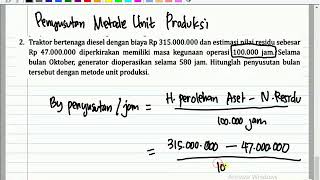 Penyusutan Metode Unit Produksi
2. Traktor bertenaga diesel dengan biaya Rp 315.000.000 dan estimasi nilai residu sebesar
Rp 47.000.000 diperkirakan memiliki masa kegunaan operasi 100.000 jam. Selama
bulan Oktober, generator dioperasikan selama 580 jam. Hitunglah penyusutan bulan
tersebut dengan metode unit produksi.
By penyusutan / jam = H. perolehan Aset - N. Residu
100.000 jam
= 315.000.000 - 47.000.000
10
Activate Windows